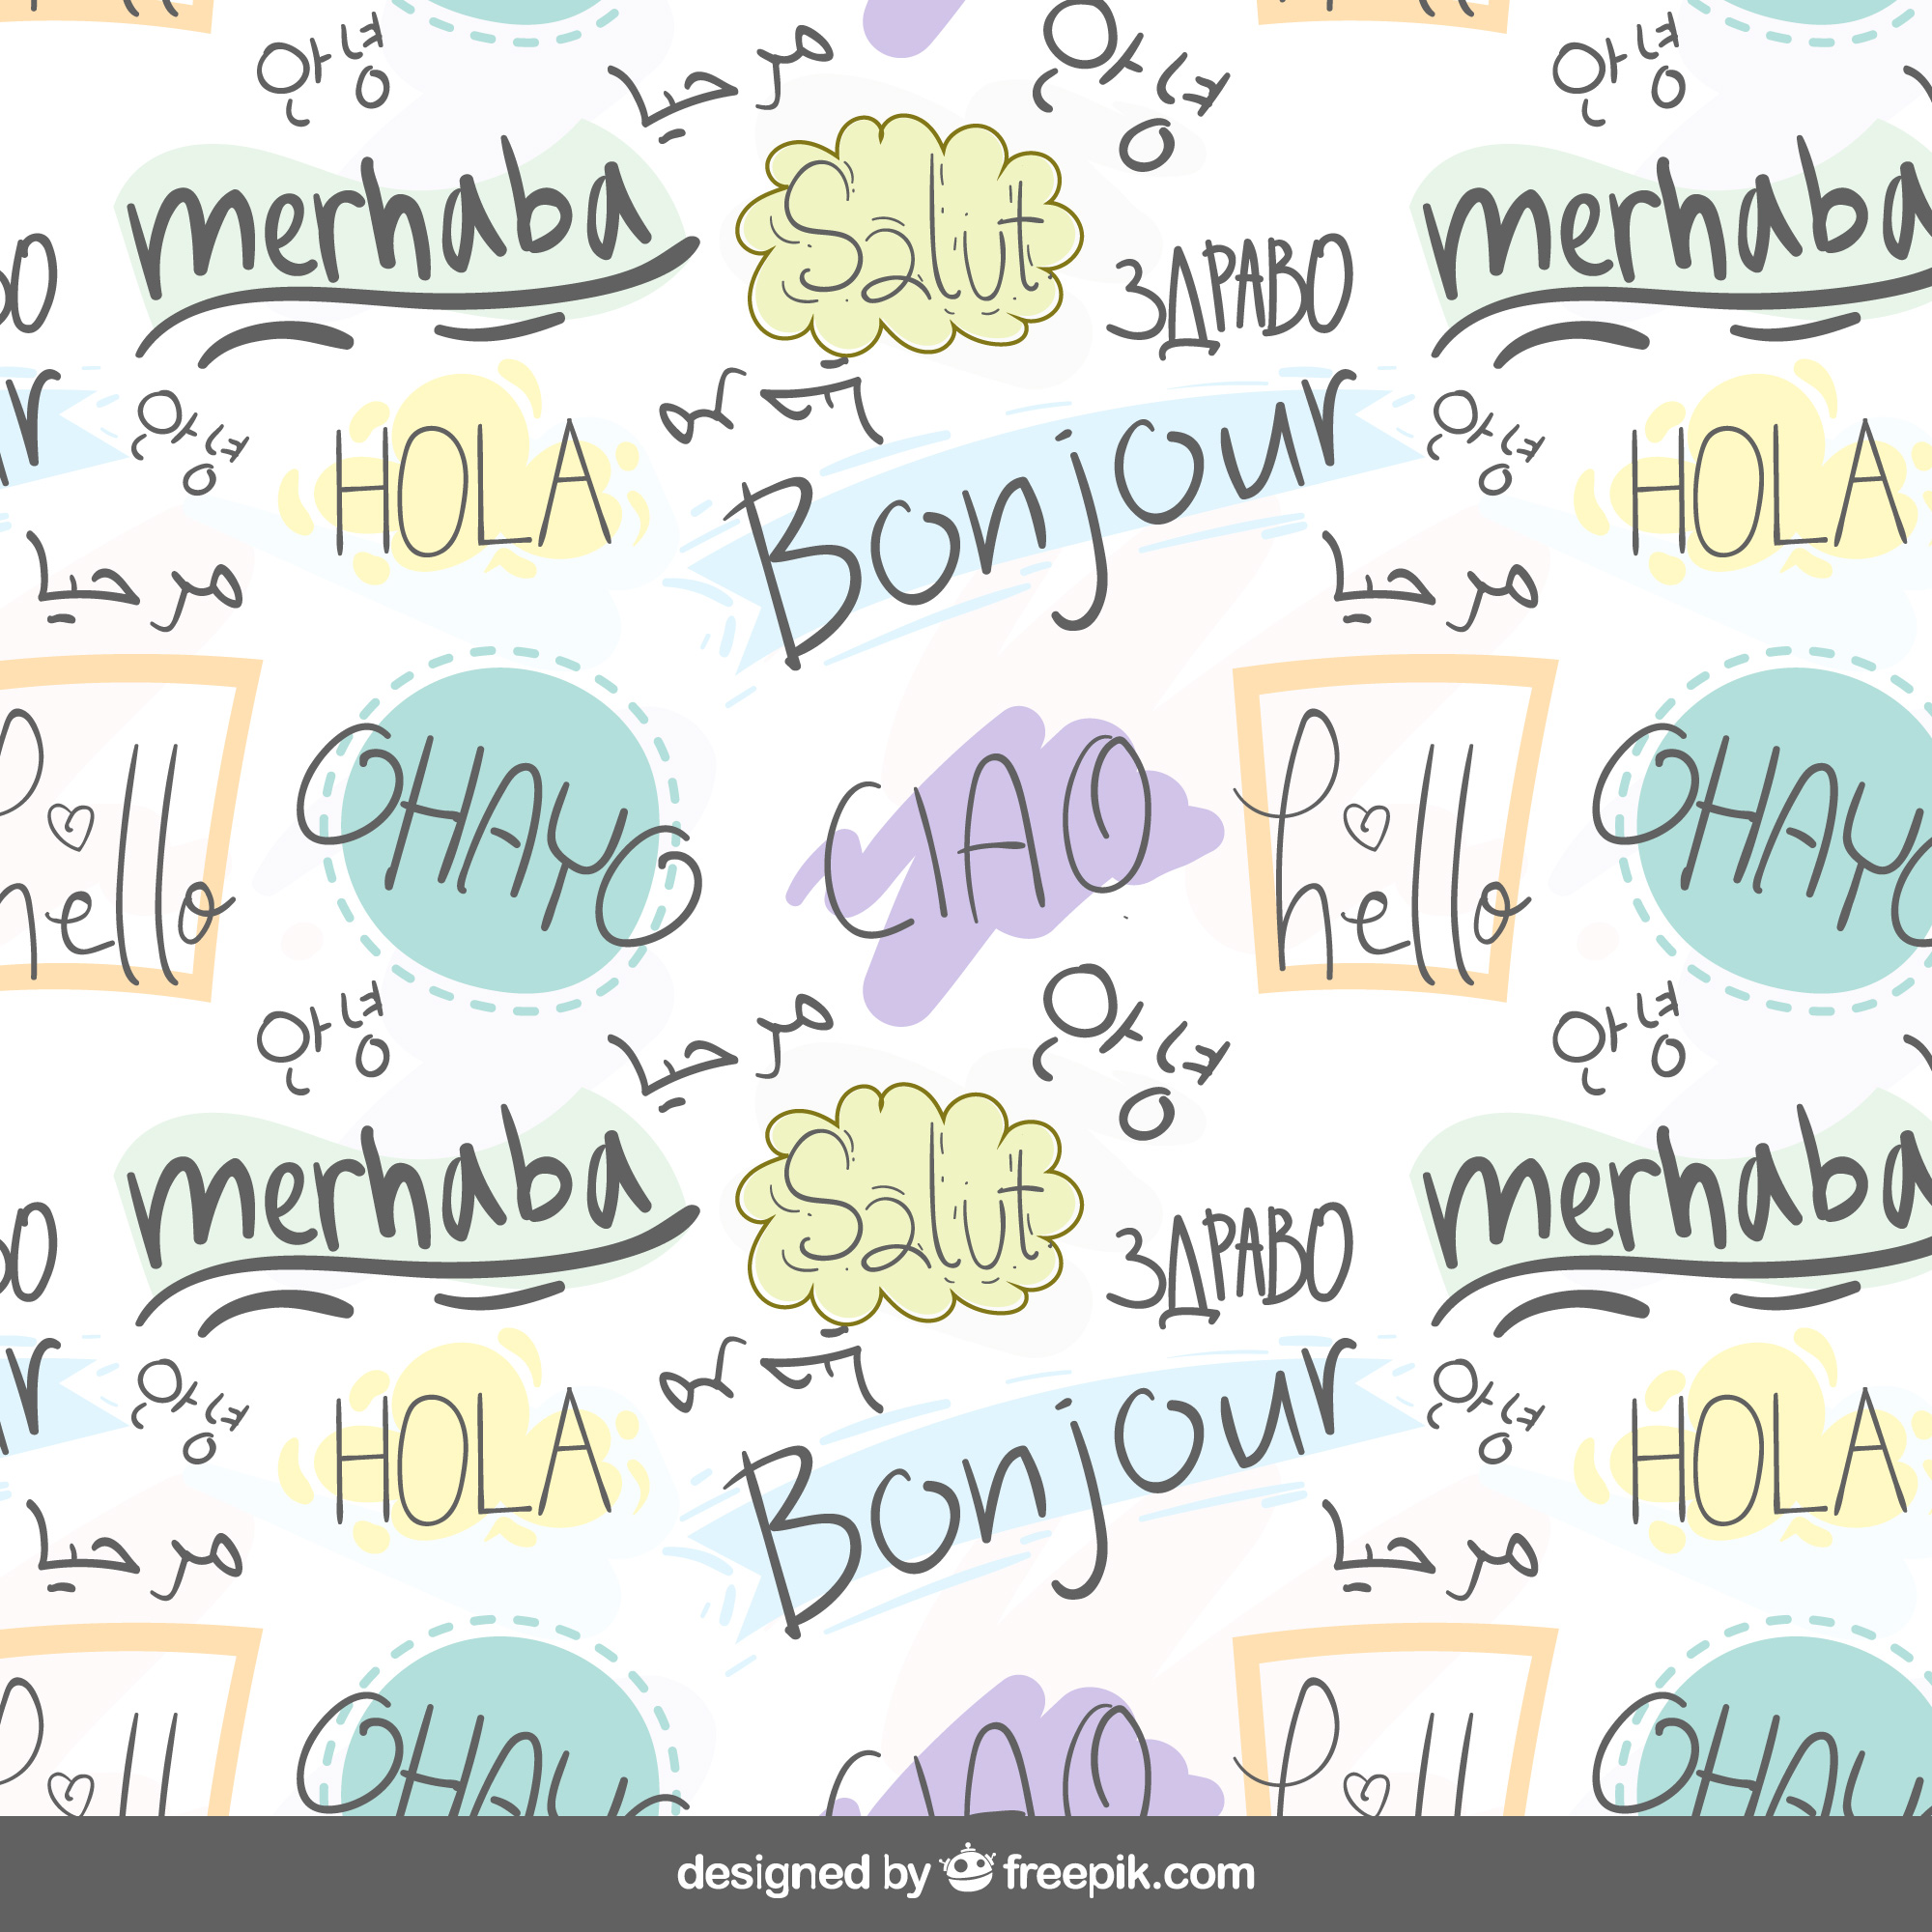 안녕
مرحبا
안녕
안녕
merhaba
Salut
ЗДРАВО
merhaba
안녕
HOLA
مرحبا
Bonjour
안녕
HOLA
مرحبا
مرحبا
hello
OHAYO
CIAO
hello
OHAYO
안녕
مرحبا
안녕
안녕
merhaba
Salut
ЗДРАВО
merhaba
안녕
HOLA
مرحبا
Bonjour
안녕
HOLA
مرحبا
مرحبا
designed by freepik.com